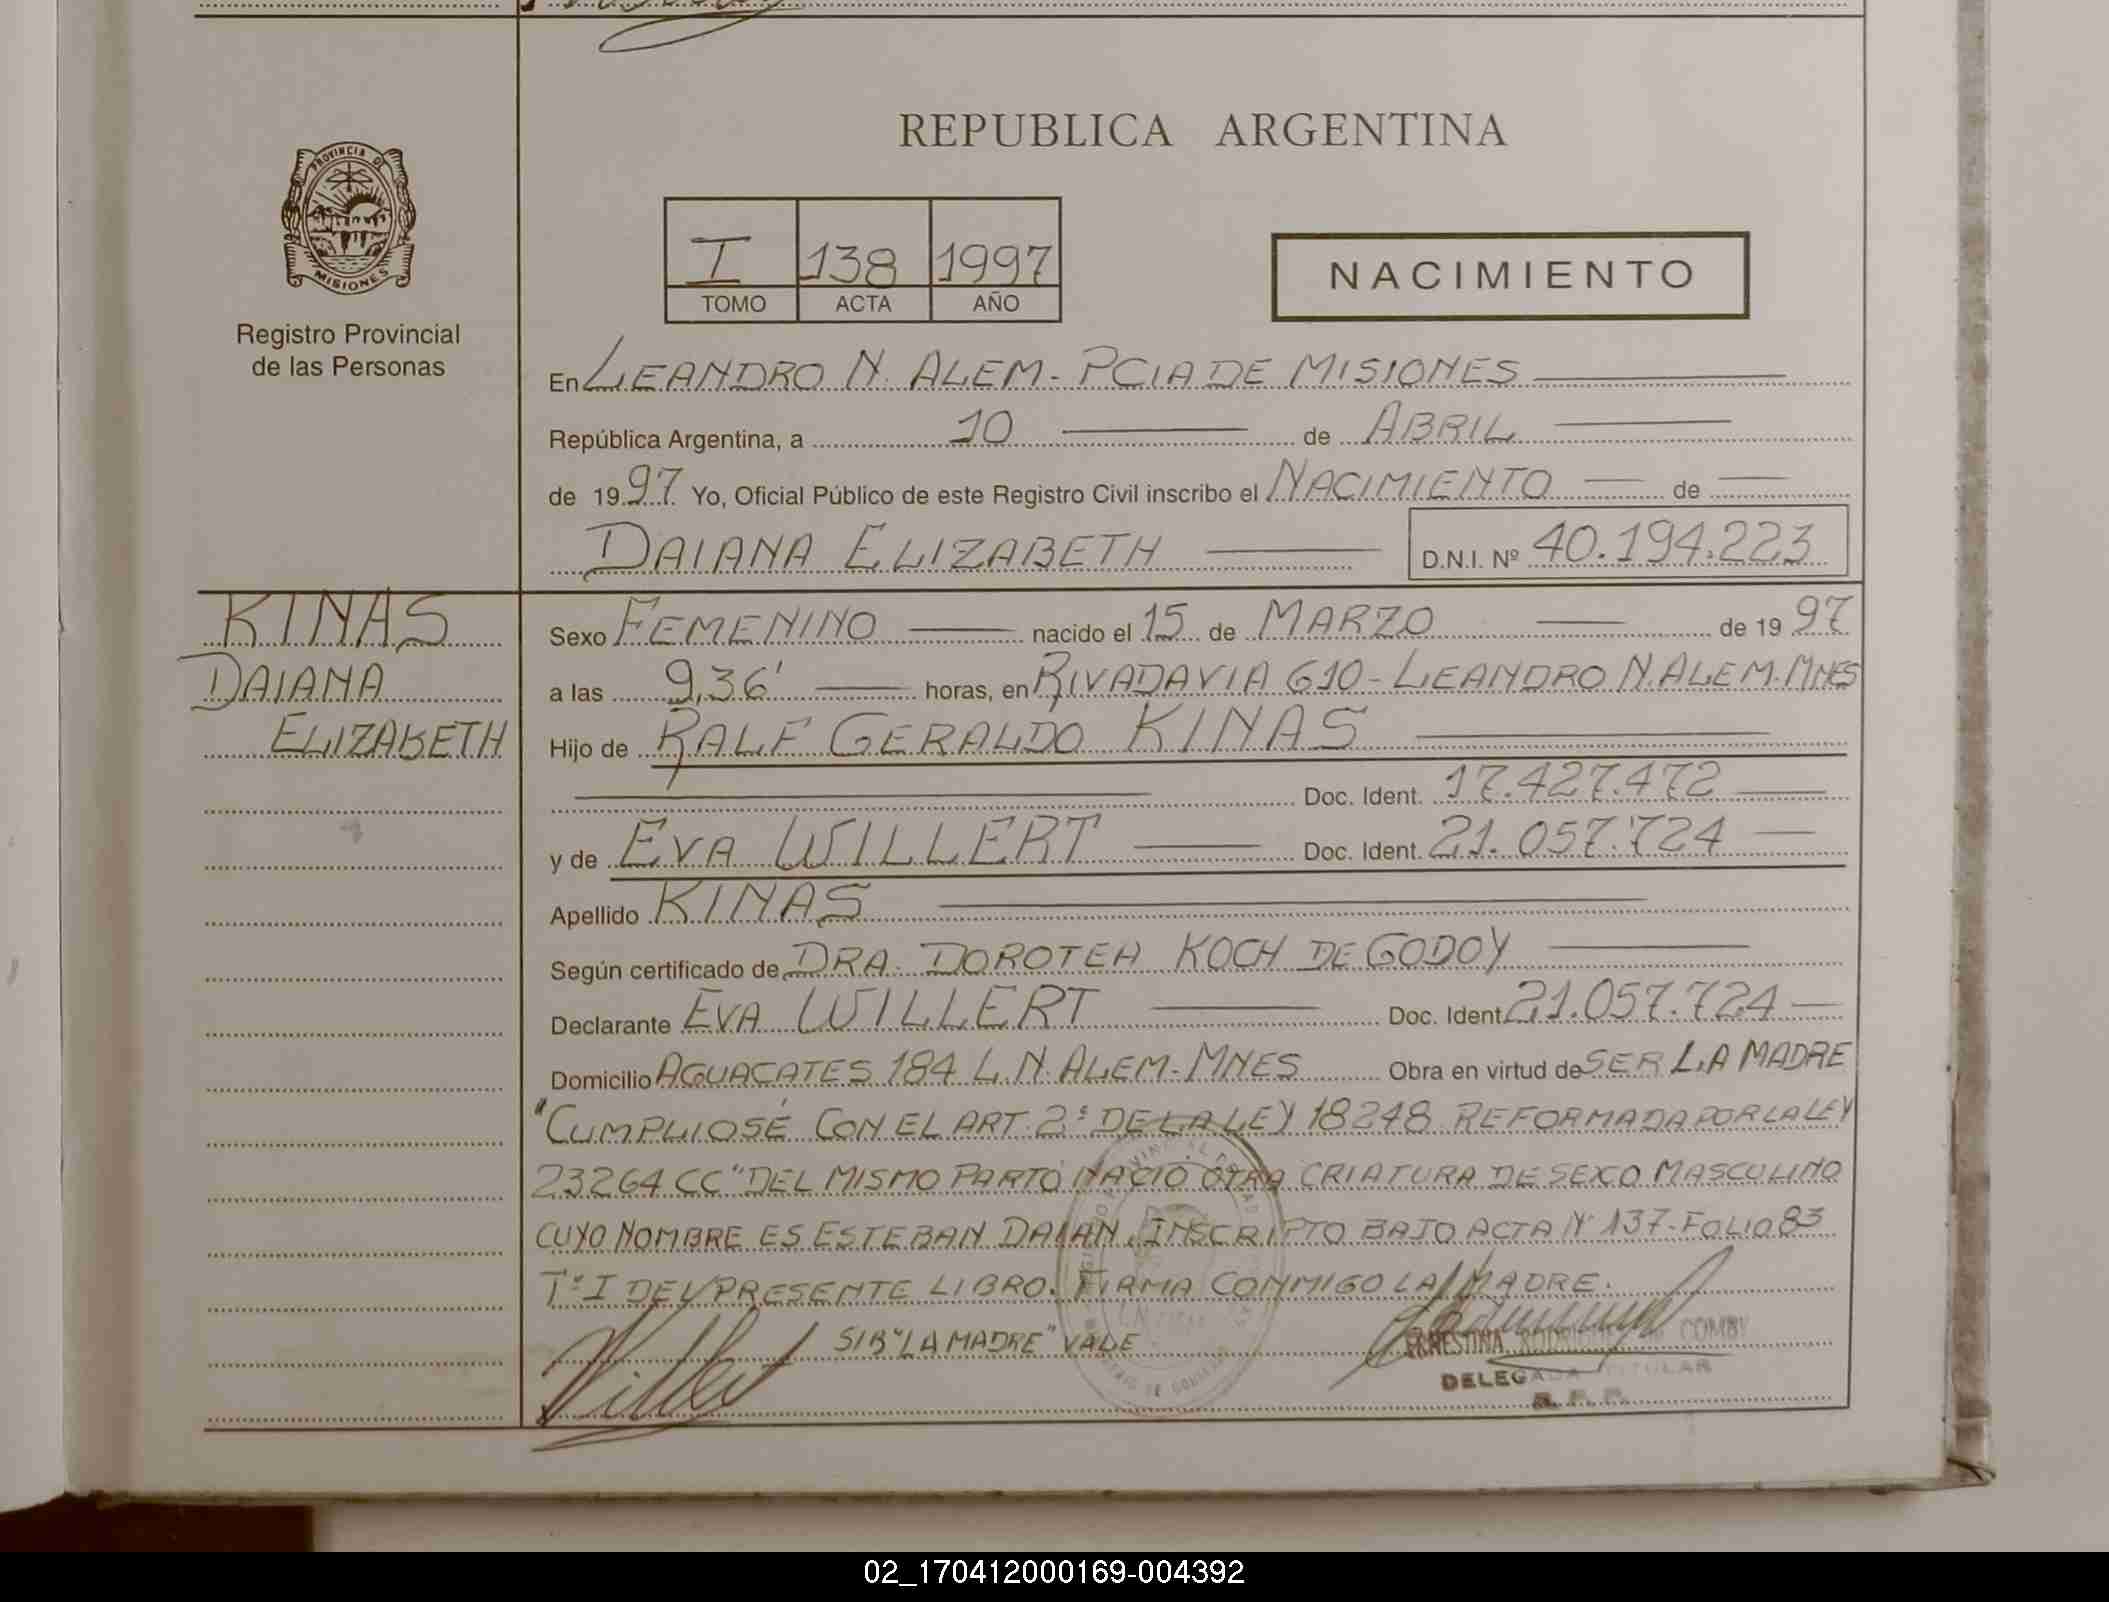 REPUBLICA ARGENTINA
PROVINCIA DE
MISIONES
Registro Provincial
de las Personas
I 138 1997
TOMO ACTA AÑO
NACIMIENTO
En LEANDRO N. ALEM - PCIA DE MISIONES
República Argentina, a 10 de ABRIL
de 1997 Yo, Oficial Público de este Registro Civil inscribo el NACIMIENTO de
DAIANA ELIZABETH D.N.I. Nº 40.194.223
KINAS
DAIANA
ELIZABETH
Sexo FEMENINO nacido el 15 de MARZO de 1997
a las 9,36' horas, en RIVADAVIA 610 - LEANDRO N. ALEM. MNES
Hijo de RALF GERALDO KINAS
Doc. Ident. 17.427.472
y de EVA WILLERT Doc. Ident. 21.057.724
Apellido KINAS
Según certificado de DRA. DOROTEA KOCH DE GODOY
Declarante EVA WILLERT Doc. Ident. 21.057.724
Domicilio AGUACATES 184 L. N. ALEM - MNES Obra en virtud de SER LA MADRE
"CUMPLIOSÉ CON EL ART. 2º DE LA LEY 18248 REFORMADA POR LA LEY
23264 CC" DEL MISMO PARTO NACIO OTRA CRIATURA DE SEXO MASCULINO
CUYO NOMBRE ES ESTEBAN DAIAN, INSCRIPTO BAJO ACTA Nº 137 - FOLIO 83
Tº I DEL PRESENTE LIBRO. FIRMA CONMIGO LA MADRE.
S/B "LA MADRE" VALE
Willert
ERNESTINA RODRIGUEZ
DELEGADA TITULAR
R. P. P.
02_170412000169-004392